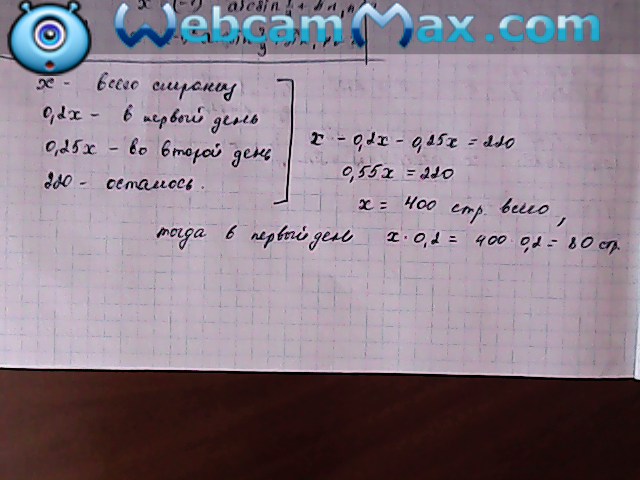 WebcamMax.com
x - всего страниц
0,2x - в первый день
0,25x - во второй день
220 - осталось.
x - 0,2x - 0,25x = 220
0,55x = 220
x = 400 стр. всего,
тогда в первый день x · 0,2 = 400 · 0,2 = 80 стр.